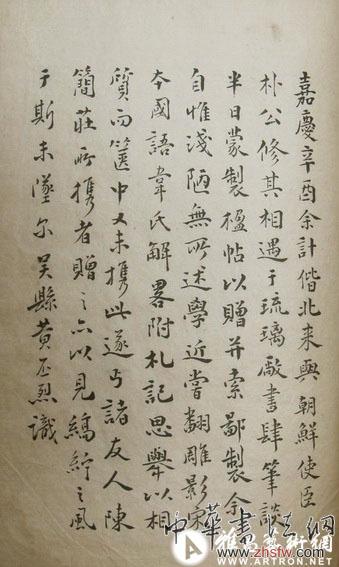 嘉慶辛酉余計偕北来與朝鮮使臣
朴公修其相遇于琉璃厰書肆筆談
半日蒙製楹帖以贈并索鄙製余
自惟淺陋無所述學近嘗翻雕影宋
本國語韋氏解畧附札記思舉以相
質而篋中又未携此遂丐諸友人陳
簡莊所携者贈之亦以見縞紵之風
于斯未墜尔吴縣黄丕烈識
中華書法網
雅昌藝術網
www.zhsfw.com
WWW.ARTRON.NET